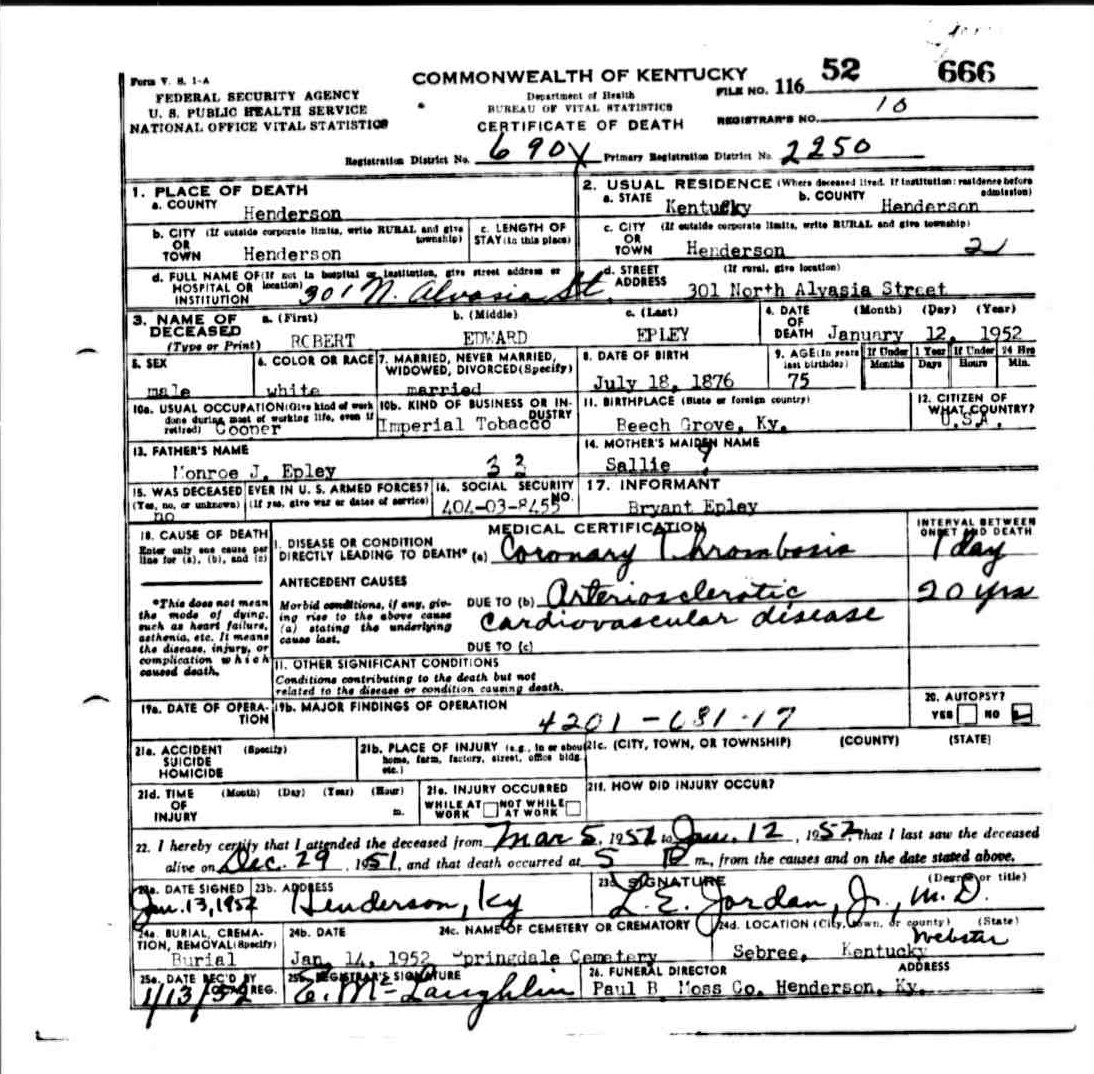 Form V. S. 1-A
FEDERAL SECURITY AGENCY
U. S. PUBLIC HEALTH SERVICE
NATIONAL OFFICE VITAL STATISTICS
COMMONWEALTH OF KENTUCKY
Department of Health
BUREAU OF VITAL STATISTICS
CERTIFICATE OF DEATH
FILE NO. 116 52 666
REGISTRAR'S NO. 10
Registration District No. 690 Primary Registration District No. 2250
1. PLACE OF DEATH
a. COUNTY Henderson
b. CITY (If outside corporate limits, write RURAL and give township)
OR TOWN Henderson
c. LENGTH OF STAY (in this place)
d. FULL NAME OF (If not in hospital or institution, give street address or location)
HOSPITAL OR INSTITUTION 301 N. Alvasia St.
2. USUAL RESIDENCE (Where deceased lived. If institution: residence before admission)
a. STATE Kentucky b. COUNTY Henderson
c. CITY (If outside corporate limits, write RURAL and give township)
OR TOWN Henderson 2
d. STREET ADDRESS (If rural, give location)
301 North Alvasia Street
3. NAME OF DECEASED (Type or Print)
a. (First) b. (Middle) c. (Last)
ROBERT EDWARD EPLEY
4. DATE OF DEATH (Month) (Day) (Year)
January 12, 1952
5. SEX
male
6. COLOR OR RACE
white
7. MARRIED, NEVER MARRIED, WIDOWED, DIVORCED (Specify)
married
8. DATE OF BIRTH
July 18, 1876
9. AGE (In years last birthday)
75
If Under 1 Year Months Days
If Under 24 Hrs Hours Min.
10a. USUAL OCCUPATION (Give kind of work done during most of working life, even if retired)
Cooper
10b. KIND OF BUSINESS OR INDUSTRY
Imperial Tobacco
11. BIRTHPLACE (State or foreign country)
Beech Grove, Ky.
12. CITIZEN OF WHAT COUNTRY?
U.S.A.
13. FATHER'S NAME
Monroe J. Epley 3 3
14. MOTHER'S MAIDEN NAME
Sallie ?
15. WAS DECEASED EVER IN U. S. ARMED FORCES?
(Yes, no, or unknown) (If yes, give war or dates of service)
no
16. SOCIAL SECURITY NO.
404-03-8455
17. INFORMANT
Bryant Epley
18. CAUSE OF DEATH
Enter only one cause per line for (a), (b), and (c)
*This does not mean the mode of dying, such as heart failure, asthenia, etc. It means the disease, injury, or complication which caused death.
MEDICAL CERTIFICATION
INTERVAL BETWEEN ONSET AND DEATH
I. DISEASE OR CONDITION
DIRECTLY LEADING TO DEATH* (a) Coronary Thrombosis 1 day
ANTECEDENT CAUSES
Morbid conditions, if any, giving rise to the above cause (a) stating the underlying cause last.
DUE TO (b) Arteriosclerotic 20 yrs
cardiovascular disease
DUE TO (c)
II. OTHER SIGNIFICANT CONDITIONS
Conditions contributing to the death but not
related to the disease or condition causing death.
19a. DATE OF OPERATION
19b. MAJOR FINDINGS OF OPERATION
4201-681-17
20. AUTOPSY?
YES NO
21a. ACCIDENT (Specify)
SUICIDE
HOMICIDE
21b. PLACE OF INJURY (e.g., in or about home, farm, factory, street, office bldg. etc.)
21c. (CITY, TOWN, OR TOWNSHIP) (COUNTY) (STATE)
21d. TIME OF INJURY (Month) (Day) (Year) (Hour) m.
21e. INJURY OCCURRED
WHILE AT WORK NOT WHILE AT WORK
21f. HOW DID INJURY OCCUR?
22. I hereby certify that I attended the deceased from Mar 5, 1951 to Jan. 12, 1952, that I last saw the deceased
alive on Dec. 29, 1951, and that death occurred at 5 P m., from the causes and on the date stated above.
23a. DATE SIGNED
Jan. 13, 1952
23b. ADDRESS
Henderson, Ky
23c. SIGNATURE (Degree or title)
L. E. Jordan, Jr., M.D.
24a. BURIAL, CREMATION, REMOVAL (Specify)
Burial
24b. DATE
Jan. 14, 1952
24c. NAME OF CEMETERY OR CREMATORY
Springdale Cemetery
24d. LOCATION (City, town, or county) (State)
Sebree, Kentucky Webster
25a. DATE REC'D BY LOCAL REG.
1/13/52
25b. REGISTRAR'S SIGNATURE
E. McLaughlin
26. FUNERAL DIRECTOR ADDRESS
Paul B. Moss Co. Henderson, Ky.